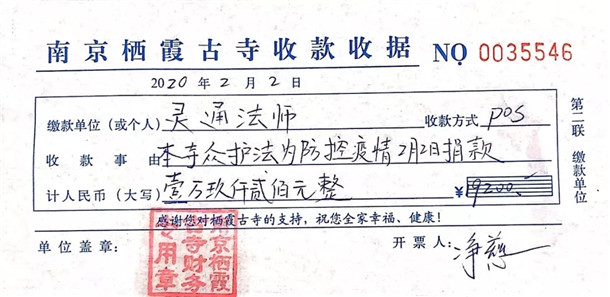 南京栖霞古寺收款收据 NO 0035546
2020年2月2日
缴款单位（或个人）灵通法师 收款方式 POS
收款事由 本寺众护法为防控疫情2月2日捐款
计人民币（大写）壹万玖仟贰佰元整 ￥
感谢您对栖霞古寺的支持，祝您全家幸福、健康！
单位盖章： 开票人：净慈
南京栖霞古寺财务专用章
第二联 缴款单位